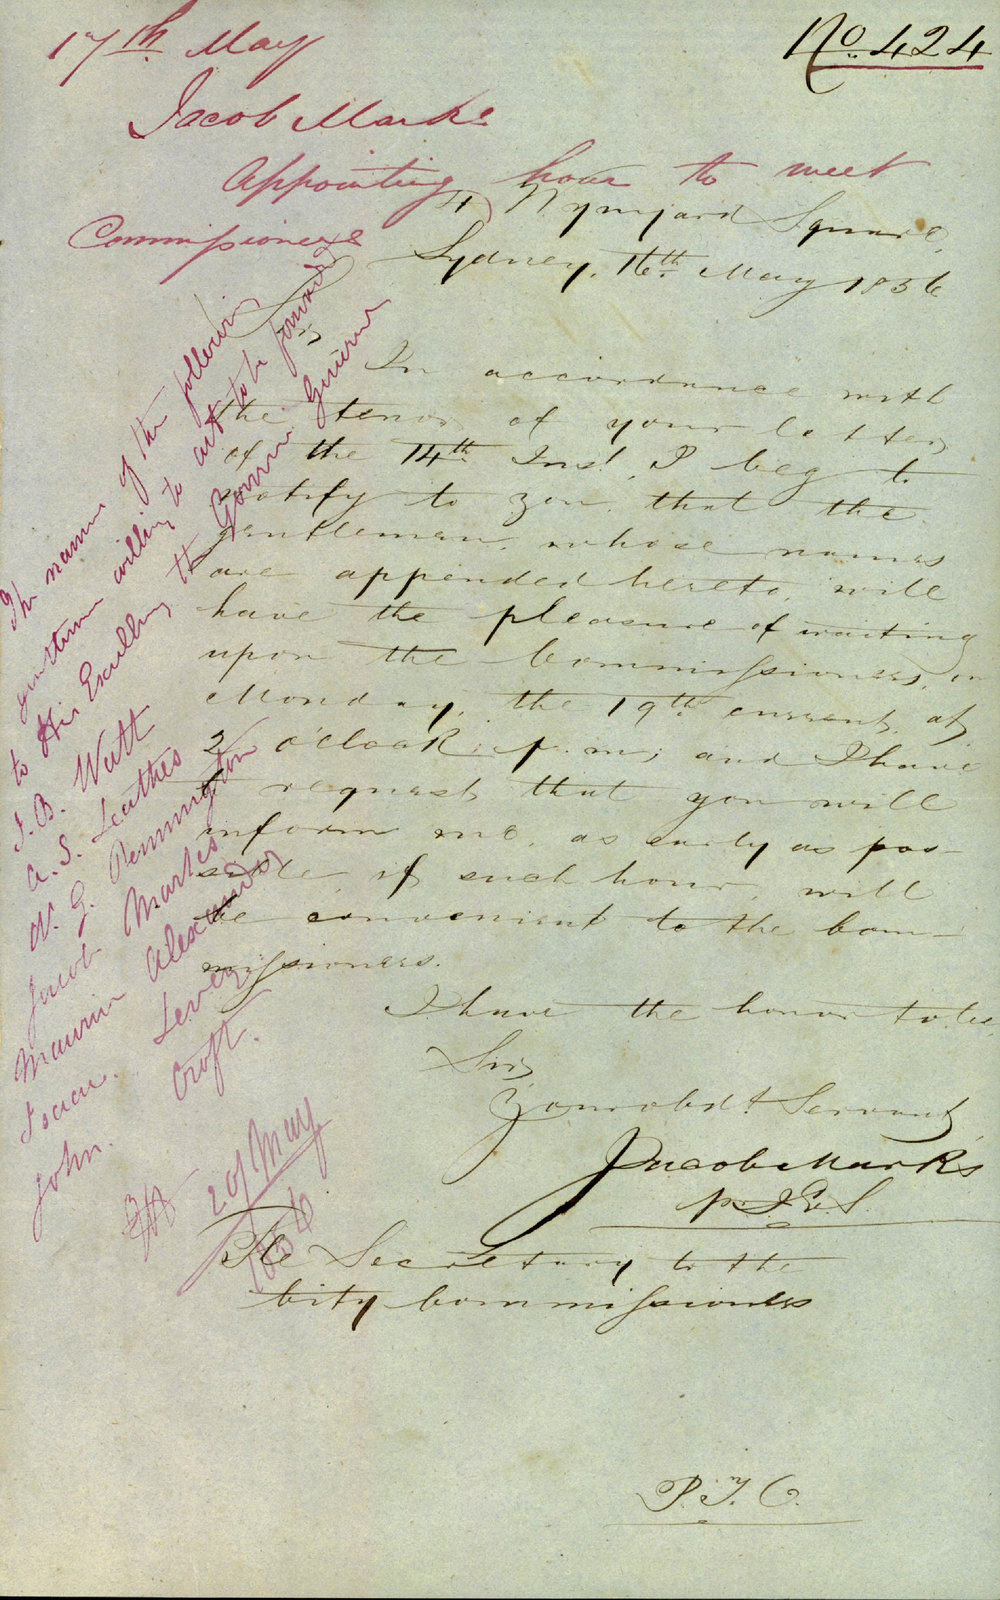 No. 424
17th May
Jacob Marks
Appointing hour to meet
Commissioners
4 Wynyard Square,
Sydney, 16th May 1856
Sir,
In accordance with
the tenor of your letter,
of the 14th Inst, I beg to
notify to you that the
gentlemen, whose names
are appended hereto, will
have the pleasure of waiting
upon the Commissioners, on
Monday, the 19th current, at
2 o'cloak, p.m; and I have
to request that you will
inform me, as early as pos-
sible, if such hour, will
be convenient to the Com-
missioners.
I have the honor to be,
Sir,
Your obdt Servant,
Jacob Marks
The Secretary to the
City Commissioners
P.T.O.
The names of the following
gentlemen willing to act to be forwarded
to His Excellency the Governor General
J. B. Watt
A. S. Leathes
W. G. Pennington
Jacob Marks
Maurice Alexander
Isaac Levey
John Croft.
20/ May
1856